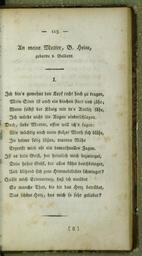 — 113 —
An meine Mutter, B. Heine,
geborne v. Geldern.
I.
Ich bin's gewohnt den Kopf recht hoch zu tragen,
Mein Sinn ist auch ein bischen starr und zähe;
Wenn selbst der König mir in's Antlitz sähe,
Ich würde nicht die Augen niederschlagen.
Doch, liebe Mutter, offen will ich's sagen:
Wie mächtig auch mein stolzer Muth sich blähe,
In deiner selig süßen, trauten Nähe
Ergreift mich oft ein demuthvolles Zagen.
Ist es dein Geist, der heimlich mich bezwinget,
Dein hoher Geist, der alles kühn durchdringet,
Und blitzend sich zum Himmelslichte schwinget?
Quält mich Erinnerung, daß ich verübet
So manche That, die dir das Herz betrübet,
Das schöne Herz, das mich so sehr geliebet?
[8]